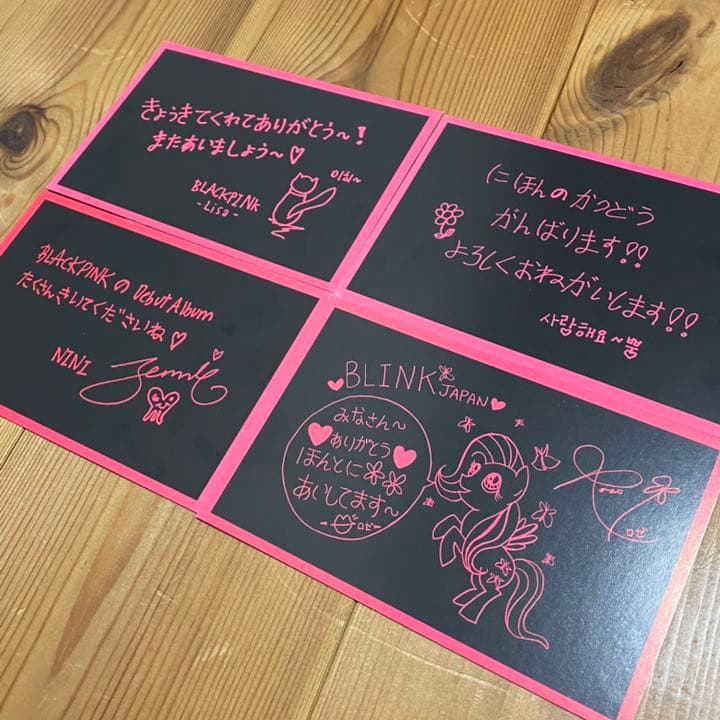 きょうきてくれてありがとう〜!
またあいましょう〜♡
BLACKPINK
-Lisa-
にほんのかつどう
がんばります!!
よろしくおねがいします!!
사랑해요~뿜
BLACKPINKのDebut Album
たくさんきいてくださいね♡
NINI
Jennie
BLINK
JAPAN
みなさん〜
ありがとう
ほんとに
あいしてます〜
ロゼー
Rosé
ロゼ